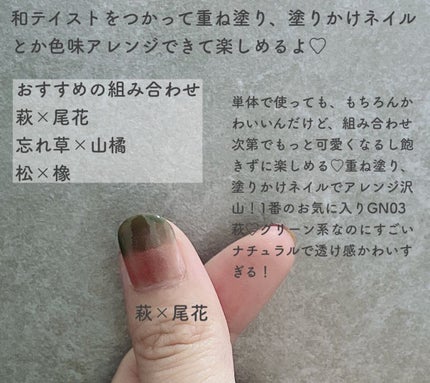 和テイストをつかって重ね塗り、塗りかけネイル
とか色味アレンジできて楽しめるよ♡
おすすめの組み合わせ
萩×尾花
忘れ草×山橘
松×橡
単体で使っても、もちろんか
わいいんだけど、組み合わせ
次第でもっと可愛くなるし飽
きずに楽しめる♡重ね塗り、
塗りかけネイルでアレンジ沢
山！1番のお気に入りGN03
萩♡グリーン系なのにすごい
ナチュラルで透け感かわいす
ぎる！
萩×尾花